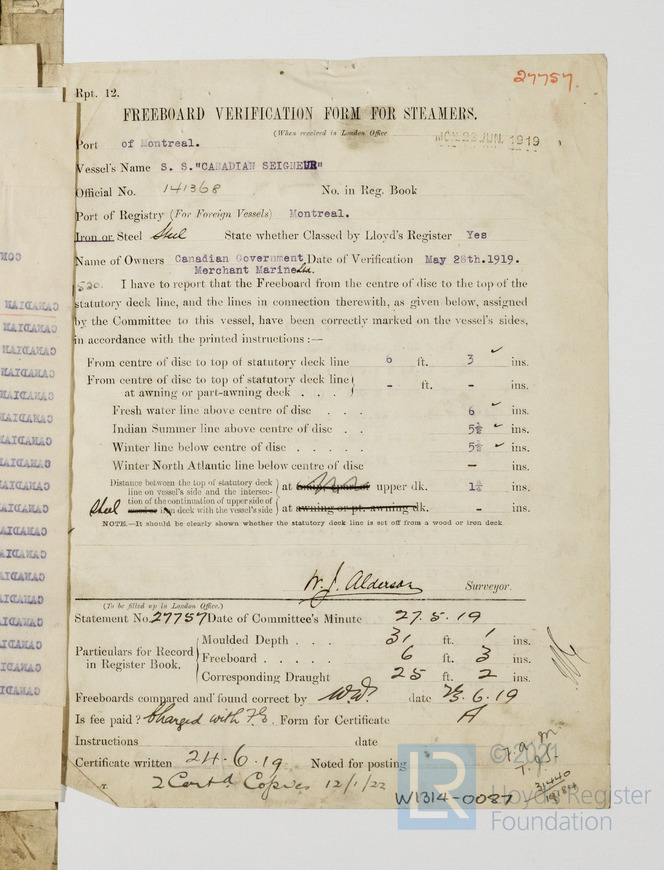 27757.
Rpt. 12.
FREEBOARD VERIFICATION FORM FOR STEAMERS.
(When received in London Office
MON. 23 JUN. 1919
Port of Montreal.
Vessel's Name S. S."CANADIAN SEIGNEUR"
Official No. 141368 No. in Reg. Book
Port of Registry (For Foreign Vessels) Montreal.
Iron or Steel Steel State whether Classed by Lloyd's Register Yes
Name of Owners Canadian Government Date of Verification May 28th.1919.
Merchant Marine Ltd.
520. I have to report that the Freeboard from the centre of disc to the top of the
statutory deck line, and the lines in connection therewith, as given below, assigned
by the Committee to this vessel, have been correctly marked on the vessel's sides,
in accordance with the printed instructions:—
From centre of disc to top of statutory deck line 6 ft. 3 ins.
From centre of disc to top of statutory deck line
at awning or part-awning deck . . . - ft. - ins.
Fresh water line above centre of disc . . . 6 ins.
Indian Summer line above centre of disc . . 5½ ins.
Winter line below centre of disc . . . . . 5½ ins.
Winter North Atlantic line below centre of disc - ins.
Distance between the top of statutory deck
line on vessel's side and the intersec-
tion of the continuation of upper side of
at upper dk. 1½ ins.
Steel iron deck with the vessel's side
at awning or pt. awning dk. - ins.
NOTE.—It should be clearly shown whether the statutory deck line is set off from a wood or iron deck
W. J. Alderson Surveyor.
(To be filled up in London Office.)
Statement No. 27757 Date of Committee's Minute 27.5.19
Particulars for Record
in Register Book.
Moulded Depth . . . 31 ft. 1 ins.
Freeboard . . . . . 6 ft. 3 ins.
Corresponding Draught 25 ft. 2 ins.
Freeboards compared and found correct by W.W. date 23.6.19
Is fee paid? Charged with F.E. Form for Certificate A
Instructions date
Certificate written 24.6.19 Noted for posting
2 Certd Copies 12/1/22
F.a.M.
T.
31440
W1314-0037
© 2021
LR
Lloyd's Register
Foundation
CANADIAN
CANADIAN
CANADIAN
CANADIAN
CANADIAN
CANADIAN
CANADIAN
CANADIAN